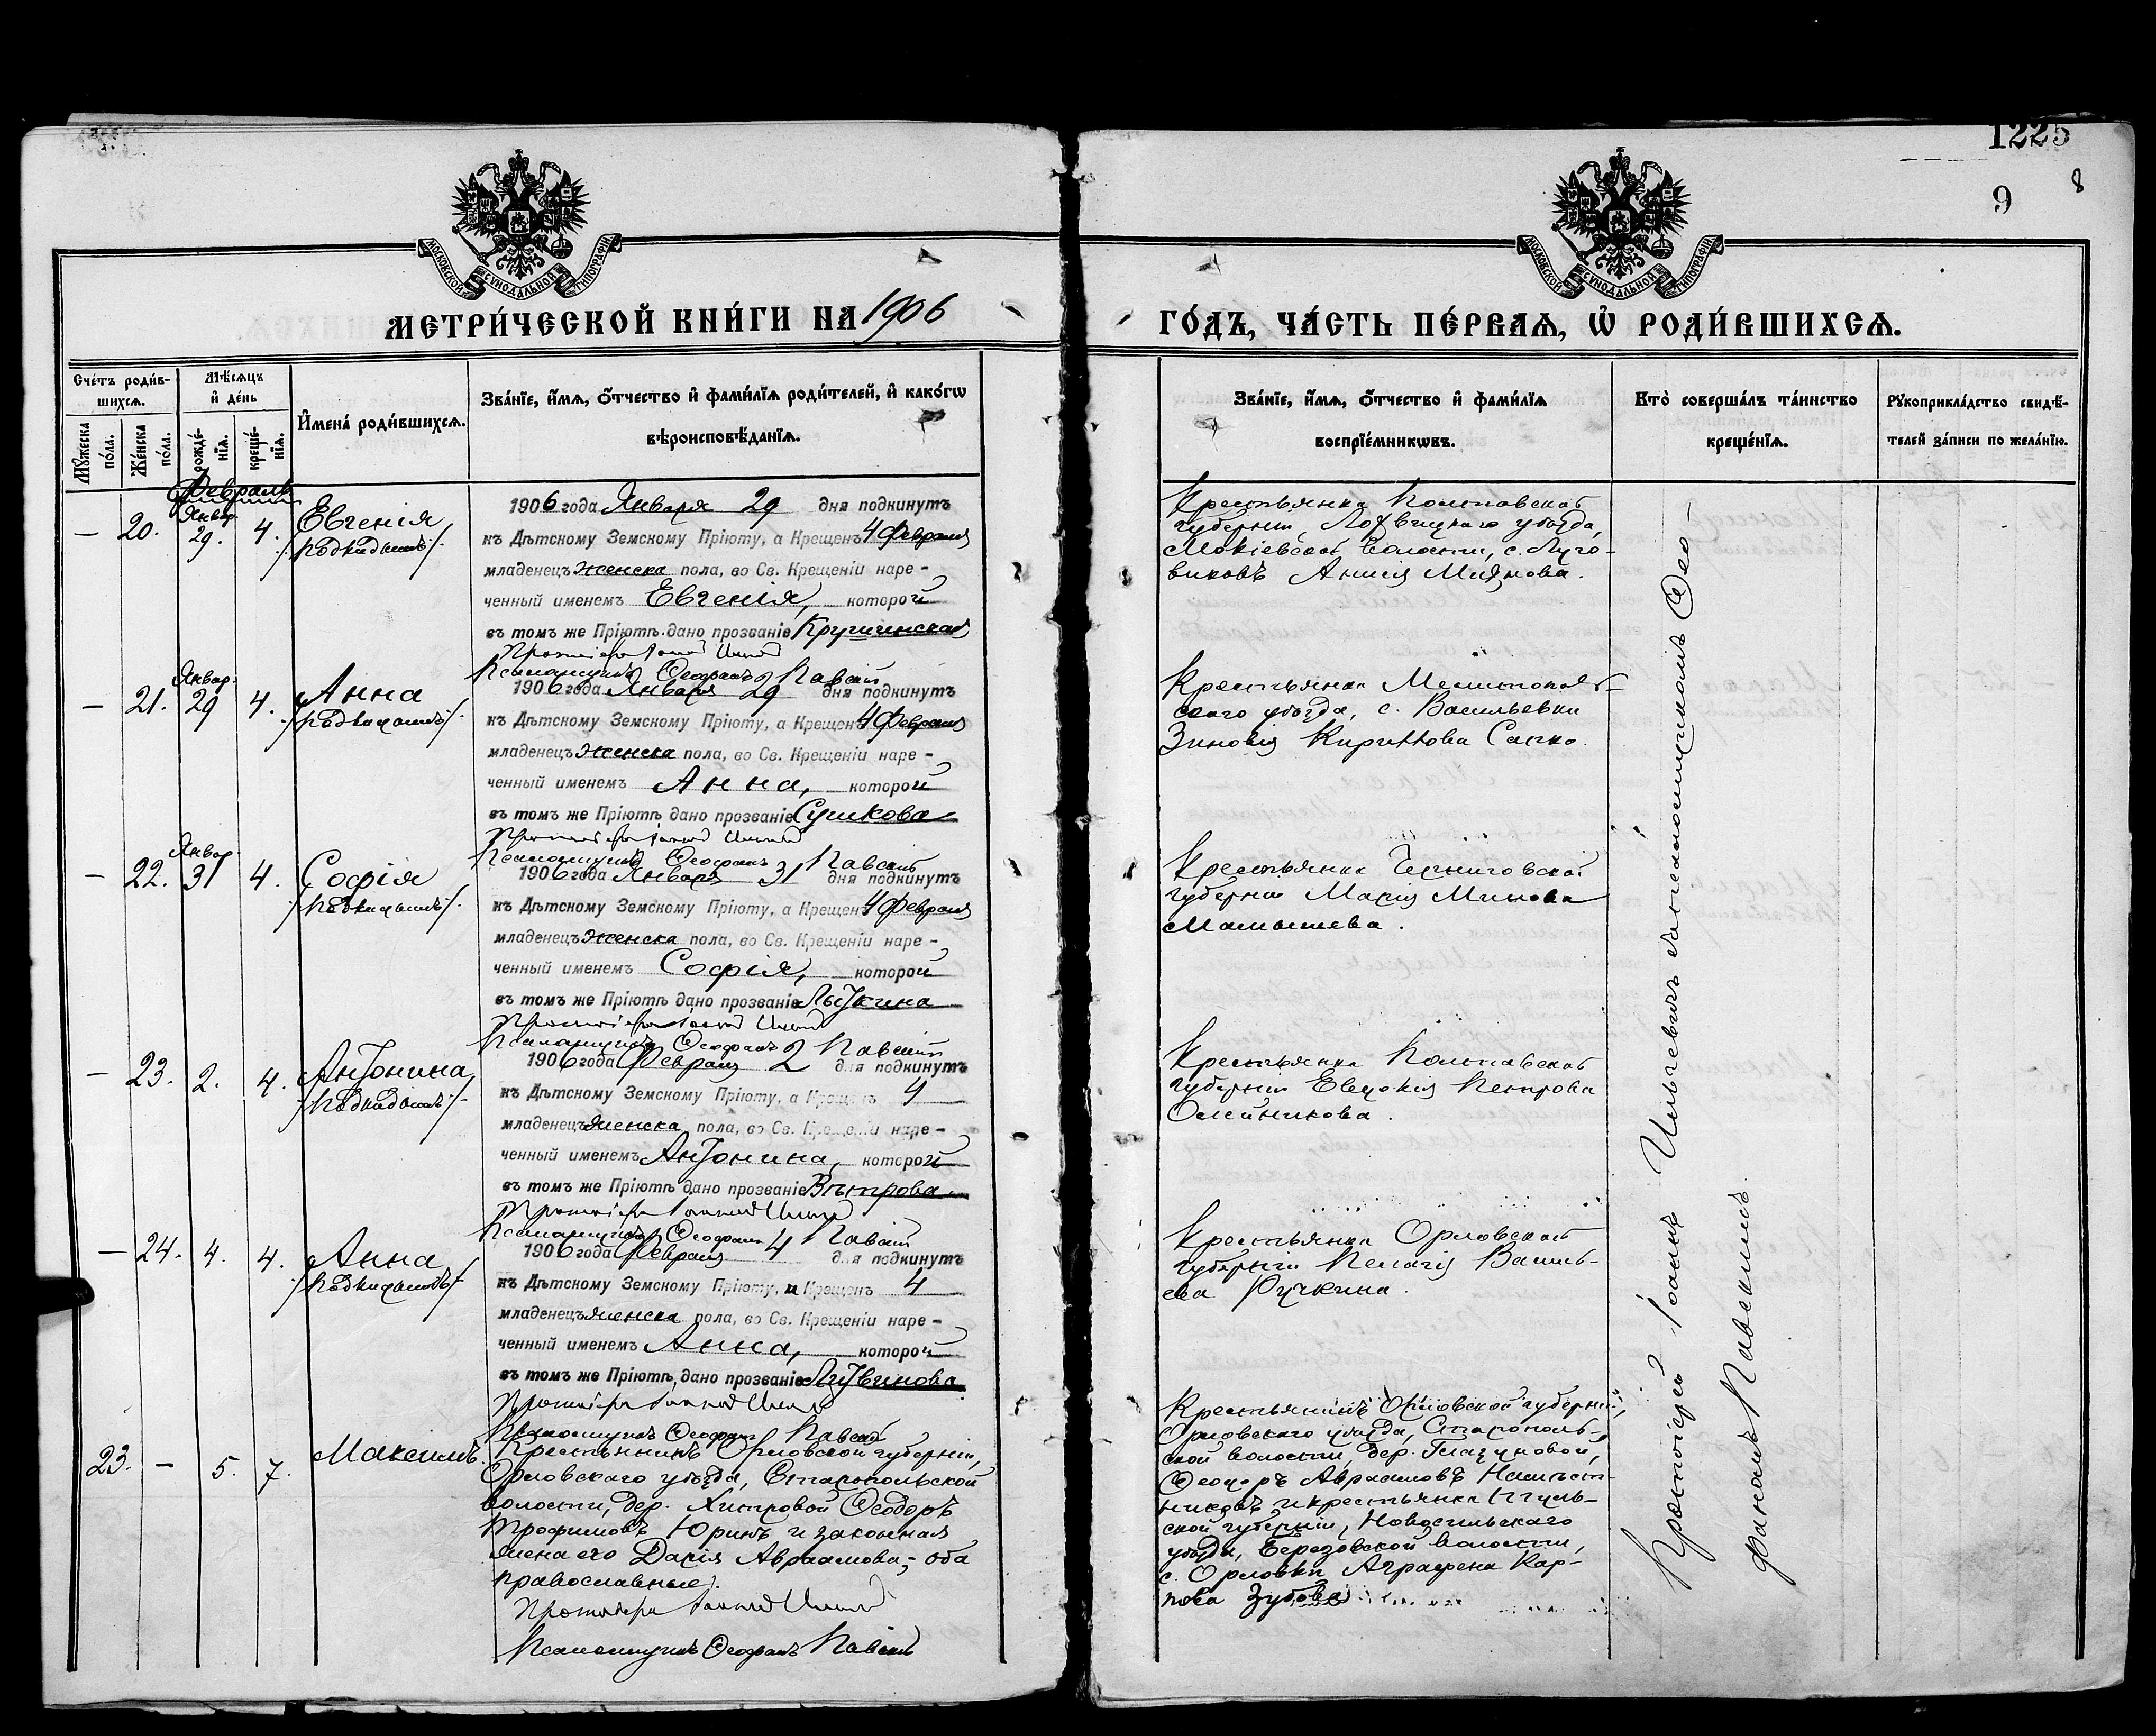 1225
9
8
МОСКОВСКОЙ СѴНОДАЛЬНОЙ ТИПОГРАФІИ
МОСКОВСКОЙ СѴНОДАЛЬНОЙ ТИПОГРАФІИ
МЕТРИ́ЧЕСКОЙ КНИ́ГИ НА 1906
ГО́ДЪ, ЧА́СТЬ ПЕ́РВАѦ, Ѡ҆ РОДИ́ВШИХСѦ.
Сче́тъ роди́в-
шихсѧ.
Мѣ́сѧцъ
и҆ де́нь
И҆мена̀ роди́вшихсѧ.
Зва́нїе, и҆́мѧ, ѻ҆́тчество и҆ фами́лїѧ роди́телей, и҆ како́гѡ
вѣроисповѣ́данїѧ.
Мꙋ́жеска
по́ла.
Же́нска
по́ла.
рожде́-
нїѧ.
креще́-
нїѧ.
Зва́нїе, и҆́мѧ, ѻ҆́тчество и҆ фами́лїѧ
воспрїе́мникѡвъ.
Кто̀ соверша́лъ та́инство
креще́нїѧ.
Рꙋкоприкла́дство свидѣ́-
телей за́писи по жела́нїю.
Февраль
— 20. Январ. 29. 4. Евгенія
/подкидышъ/.
1906 года Января 29 дня подкинутъ
къ Дѣтскому Земскому Пріюту, а Крещенъ 4 Февраля
младенецъ женска пола, во Св. Крещеніи наре-
ченный именемъ Евгенія, которой
въ томъ же Пріютѣ дано прозваніе Кручинская
Протоіерей Іоаннъ
Псаломщикъ Ѳеофанъ Павскій
Крестьянка Полтавской
губерніи, Лохвицкаго уѣзда,
Мокіевской волости, с. Луго-
виковъ Анисія
— 21. Январ. 29 4. Анна
/подкидышъ/.
1906 года Января 29 дня подкинутъ
къ Дѣтскому Земскому Пріюту, а Крещенъ 4 Февраля
младенецъ женска пола, во Св. Крещеніи наре-
ченный именемъ Анна, которой
въ томъ же Пріютѣ дано прозваніе Сушкова
Протоіерей Іоаннъ
Псаломщикъ Ѳеофанъ Павскій
Крестьянка Мелитополь-
скаго уѣзда, с. Васильевки
Зиновія Кириллова
— 22. Январ. 31 4. Софія
/подкидышъ/.
1906 года Января 31 дня подкинутъ
къ Дѣтскому Земскому Пріюту, а Крещенъ 4 Февраля
младенецъ женска пола, во Св. Крещеніи наре-
ченный именемъ Софія, которой
въ томъ же Пріютѣ дано прозваніе Лыткина
Протоіерей Іоаннъ
Псаломщикъ Ѳеофанъ Павскій
Крестьянка Черниговской
губерніи Марія Минова
Малышева.
— 23. 2. 4. Антонина
/подкидышъ/.
1906 года Февраля 2 дня подкинутъ
къ Дѣтскому Земскому Пріюту, а Крещенъ 4
младенецъ женска пола, во Св. Крещеніи наре-
ченный именемъ Антонина, которой
въ томъ же Пріютѣ дано прозваніе Вѣтрова
Протоіерей Іоаннъ
Псаломщикъ Ѳеофанъ Павскій
Крестьянка Полтавской
губерніи Евдокія Петрова
Олейникова.
— 24. 4. 4. Анна
/подкидышъ/.
1906 года Февраля 4 дня подкинутъ
къ Дѣтскому Земскому Пріюту, и Крещенъ 4
младенецъ женска пола, во Св. Крещеніи наре-
ченный именемъ Анна, которой
въ томъ же Пріютѣ, дано прозваніе Литвинова
Протоіерей Іоаннъ
Псаломщикъ Ѳеофанъ Павскій
Крестьянка Орловской
губерніи Пелагія Василь-
ева Ручкина.
23. — 5. 7. Максимъ.
Крестьянинъ Орловской губерніи,
Орловскаго уѣзда,
волости, дер. Хитровой Ѳеодоръ
Трофимовъ Юринъ и законная
жена его Дарія Авраамова, оба
православные.
Протоіерей Іоаннъ
Псаломщикъ Ѳеофанъ Павскій
Крестьянинъ Орловской губерніи,
Орловскаго уѣзда,
ской волости, дер. Глазуновой,
Ѳеодоръ Авраамовъ
и крестьянка Туль-
ской губерніи, Новосильскаго
уѣзда, Березовской волости,
с. Орловки Аграфена Кар-
пова Зубова
Протоіерей Іоаннъ съ псаломщикомъ Ѳео-
фаномъ Павскимъ.